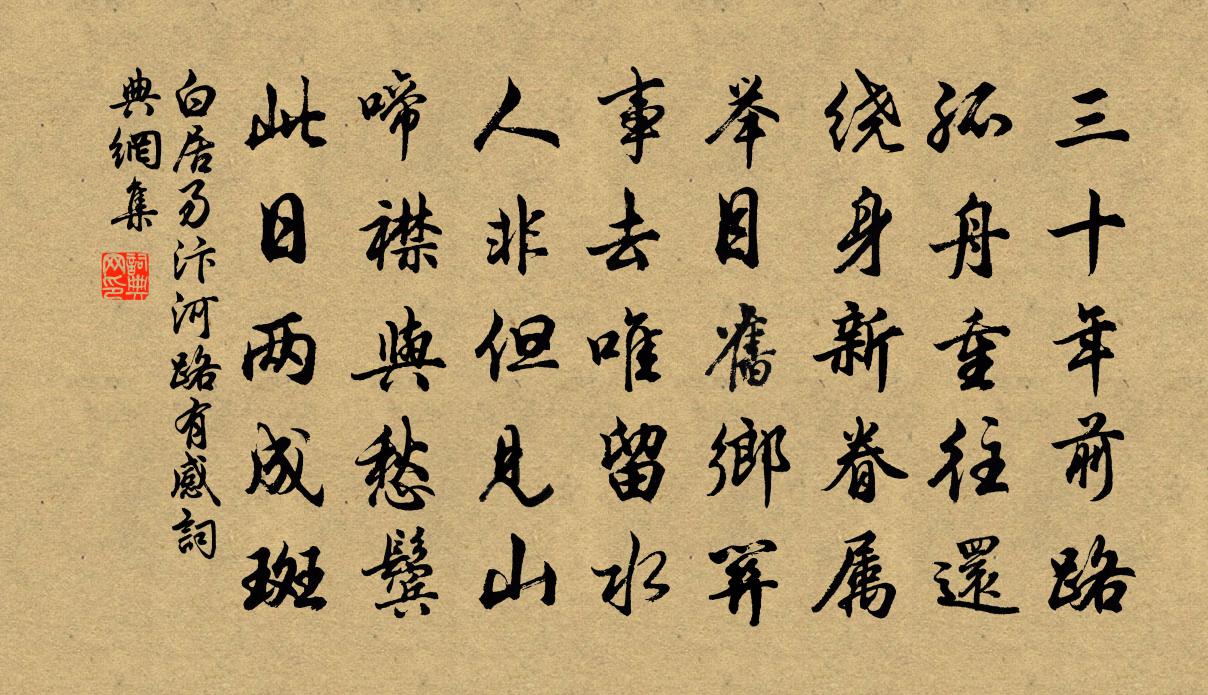 三十年前路
孤舟重往還
绕身新眷属
举目舊鄉關
事去唯留水
人非但見山
啼襟與愁鬢
此日两成斑
白居易汴河路有感詞
典網集
詞典
网印